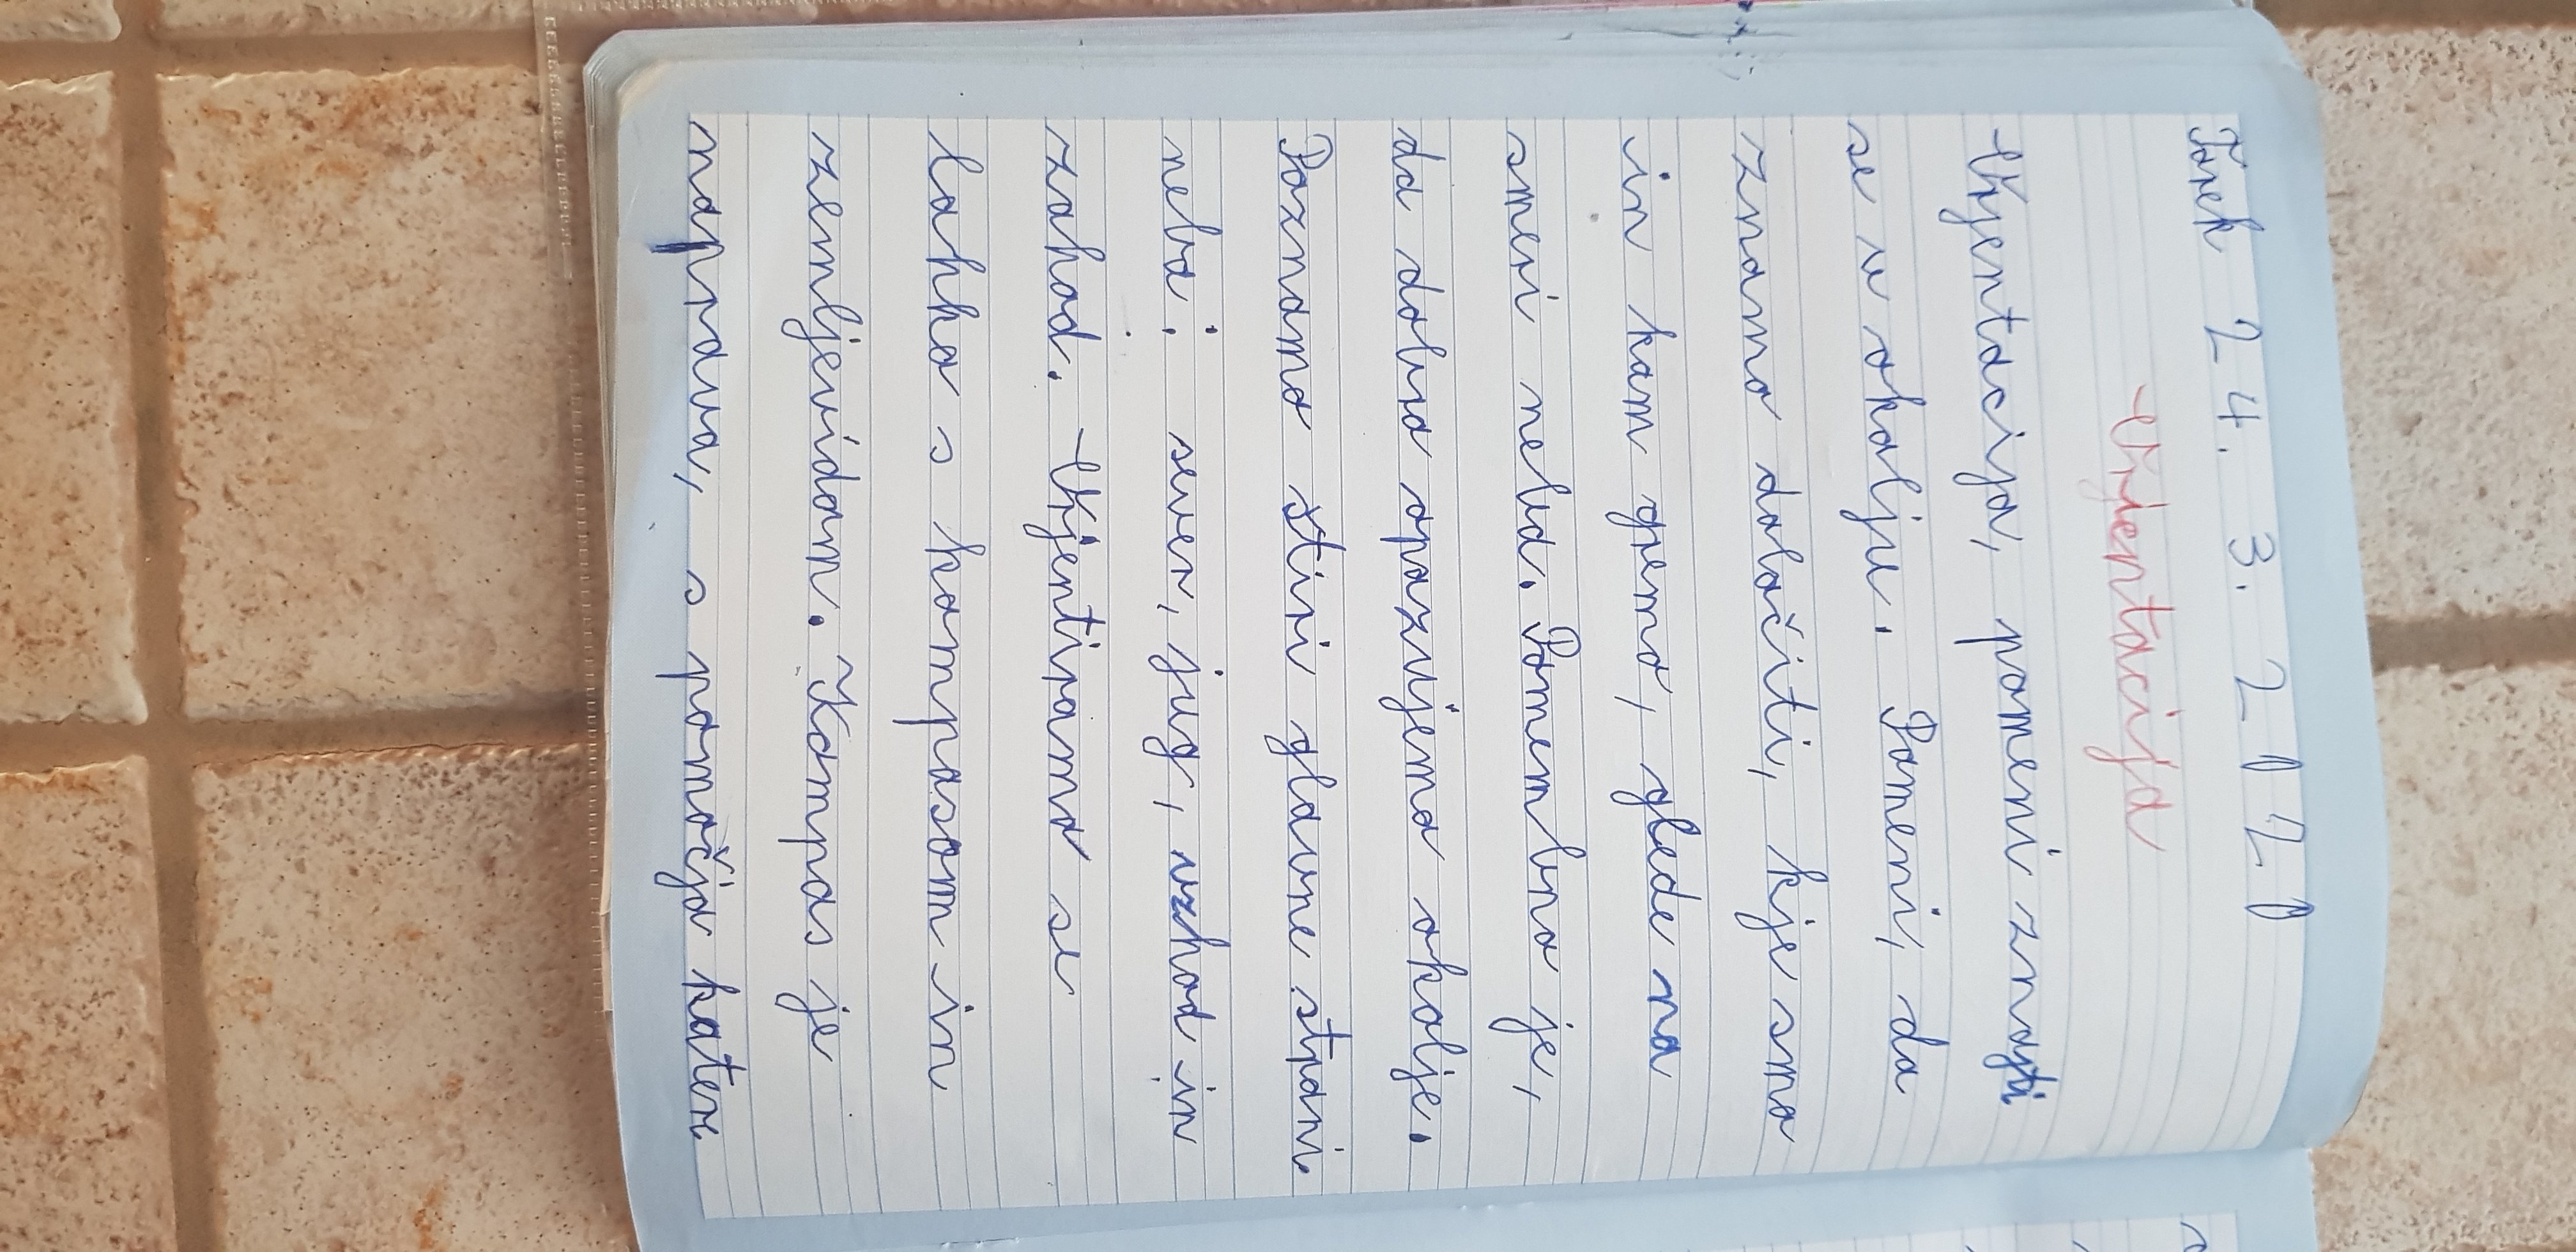 Torek 24. 3. 2020
Orjentacija
Orjentacija, pomeni znajti
se v okolju. Pomeni, da
znamo določiti, kje smo
in kam gremo, glede na
smeri neba. Pomembno je,
da dobro opazujemo okolje.
Poznamo štiri glavne strani
neba: sever, jug, vzhod in
zahod. Orjentiramo se
lahko s kompasom in
zemljevidom. Kompas je
naprava, s pomočjo kater